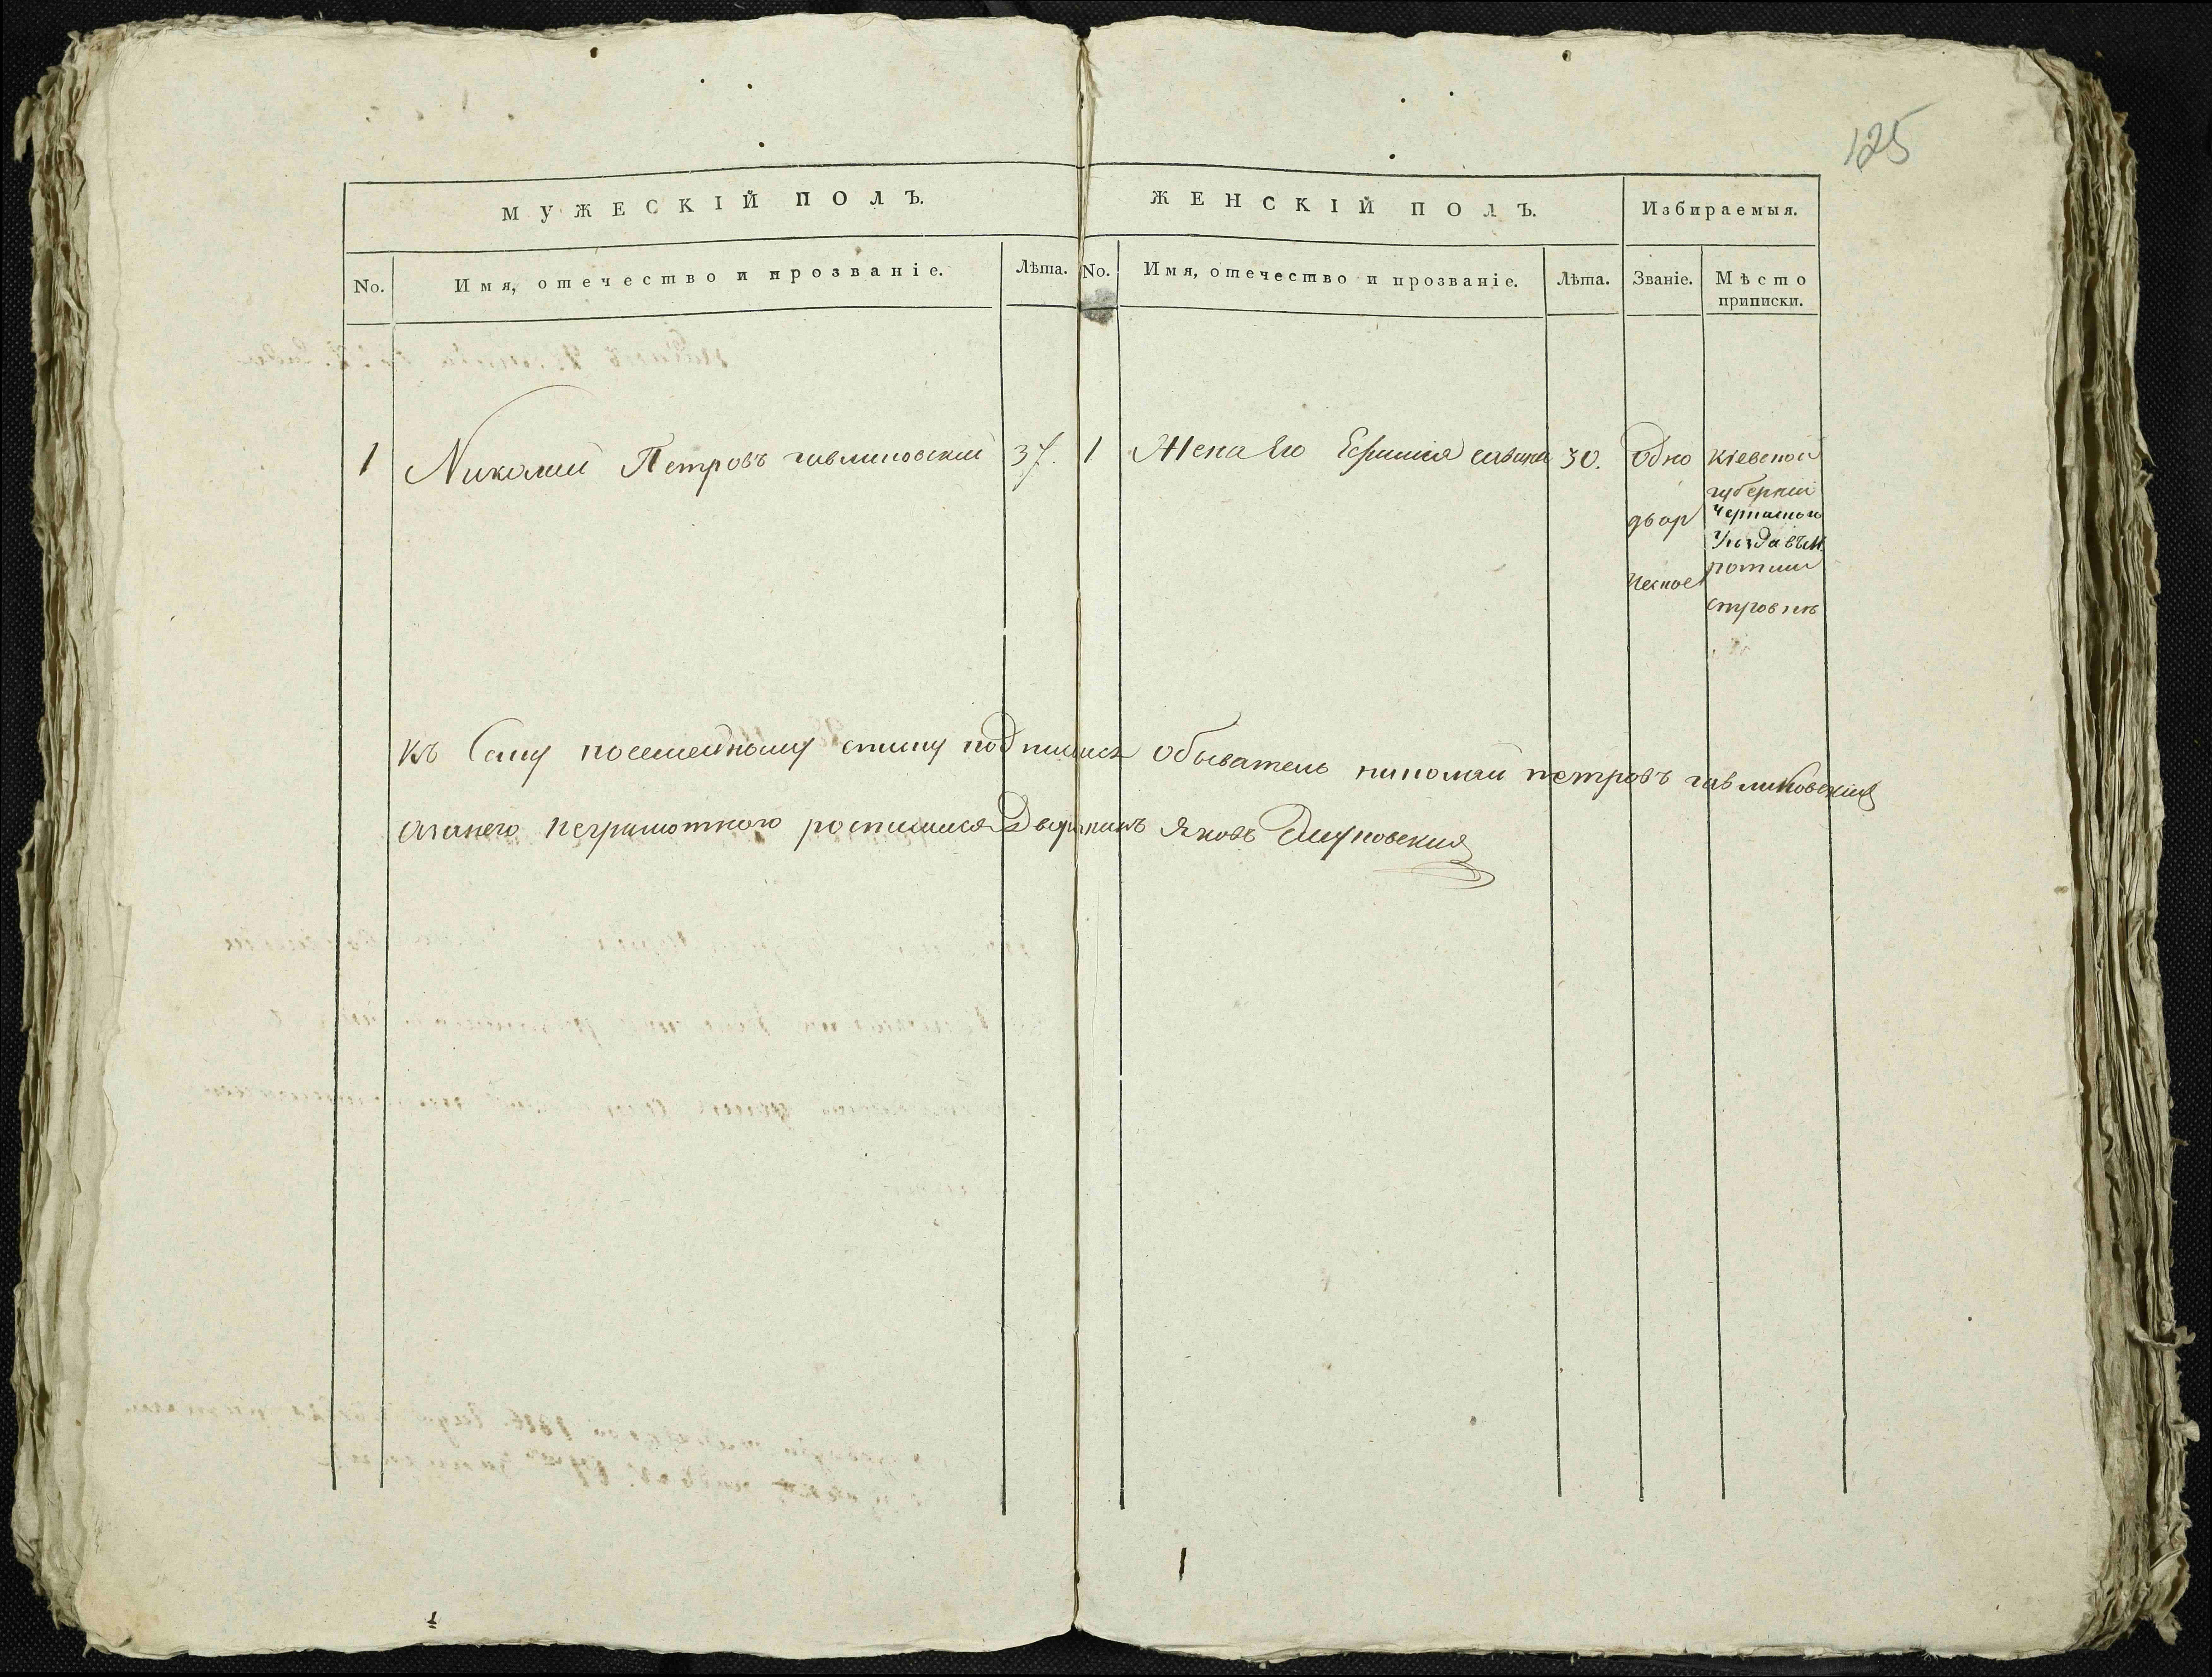 125
МУЖЕСКІЙ ПОЛЪ. ЖЕНСКІЙ ПОЛЪ. Избираемыя.
No. Имя, отечество и прозваніе. Лѣта. No. Имя, отечество и прозваніе. Лѣта. Званіе. Мѣсто
приписки.
1 Николай Петровъ гавликовскій 37. 1 Жена Его 30. Одно Кіевской
губерніи
двор
Уѣзда въ м
ческое
К Сему посемейному списку подписался обыватель николай петровъ гавликовский
аза него неграмотного росписился Дворянинъ Яковъ
1
1